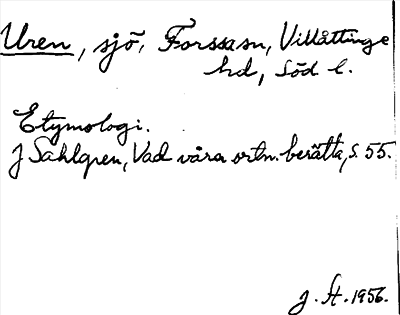 Uren, sjö, Forssasn, Villåttinge
hd, Söd l.
Etymologi.
J Sahlgren, Vad våra ortn. berätta, s. 55.
J. St. 1956.